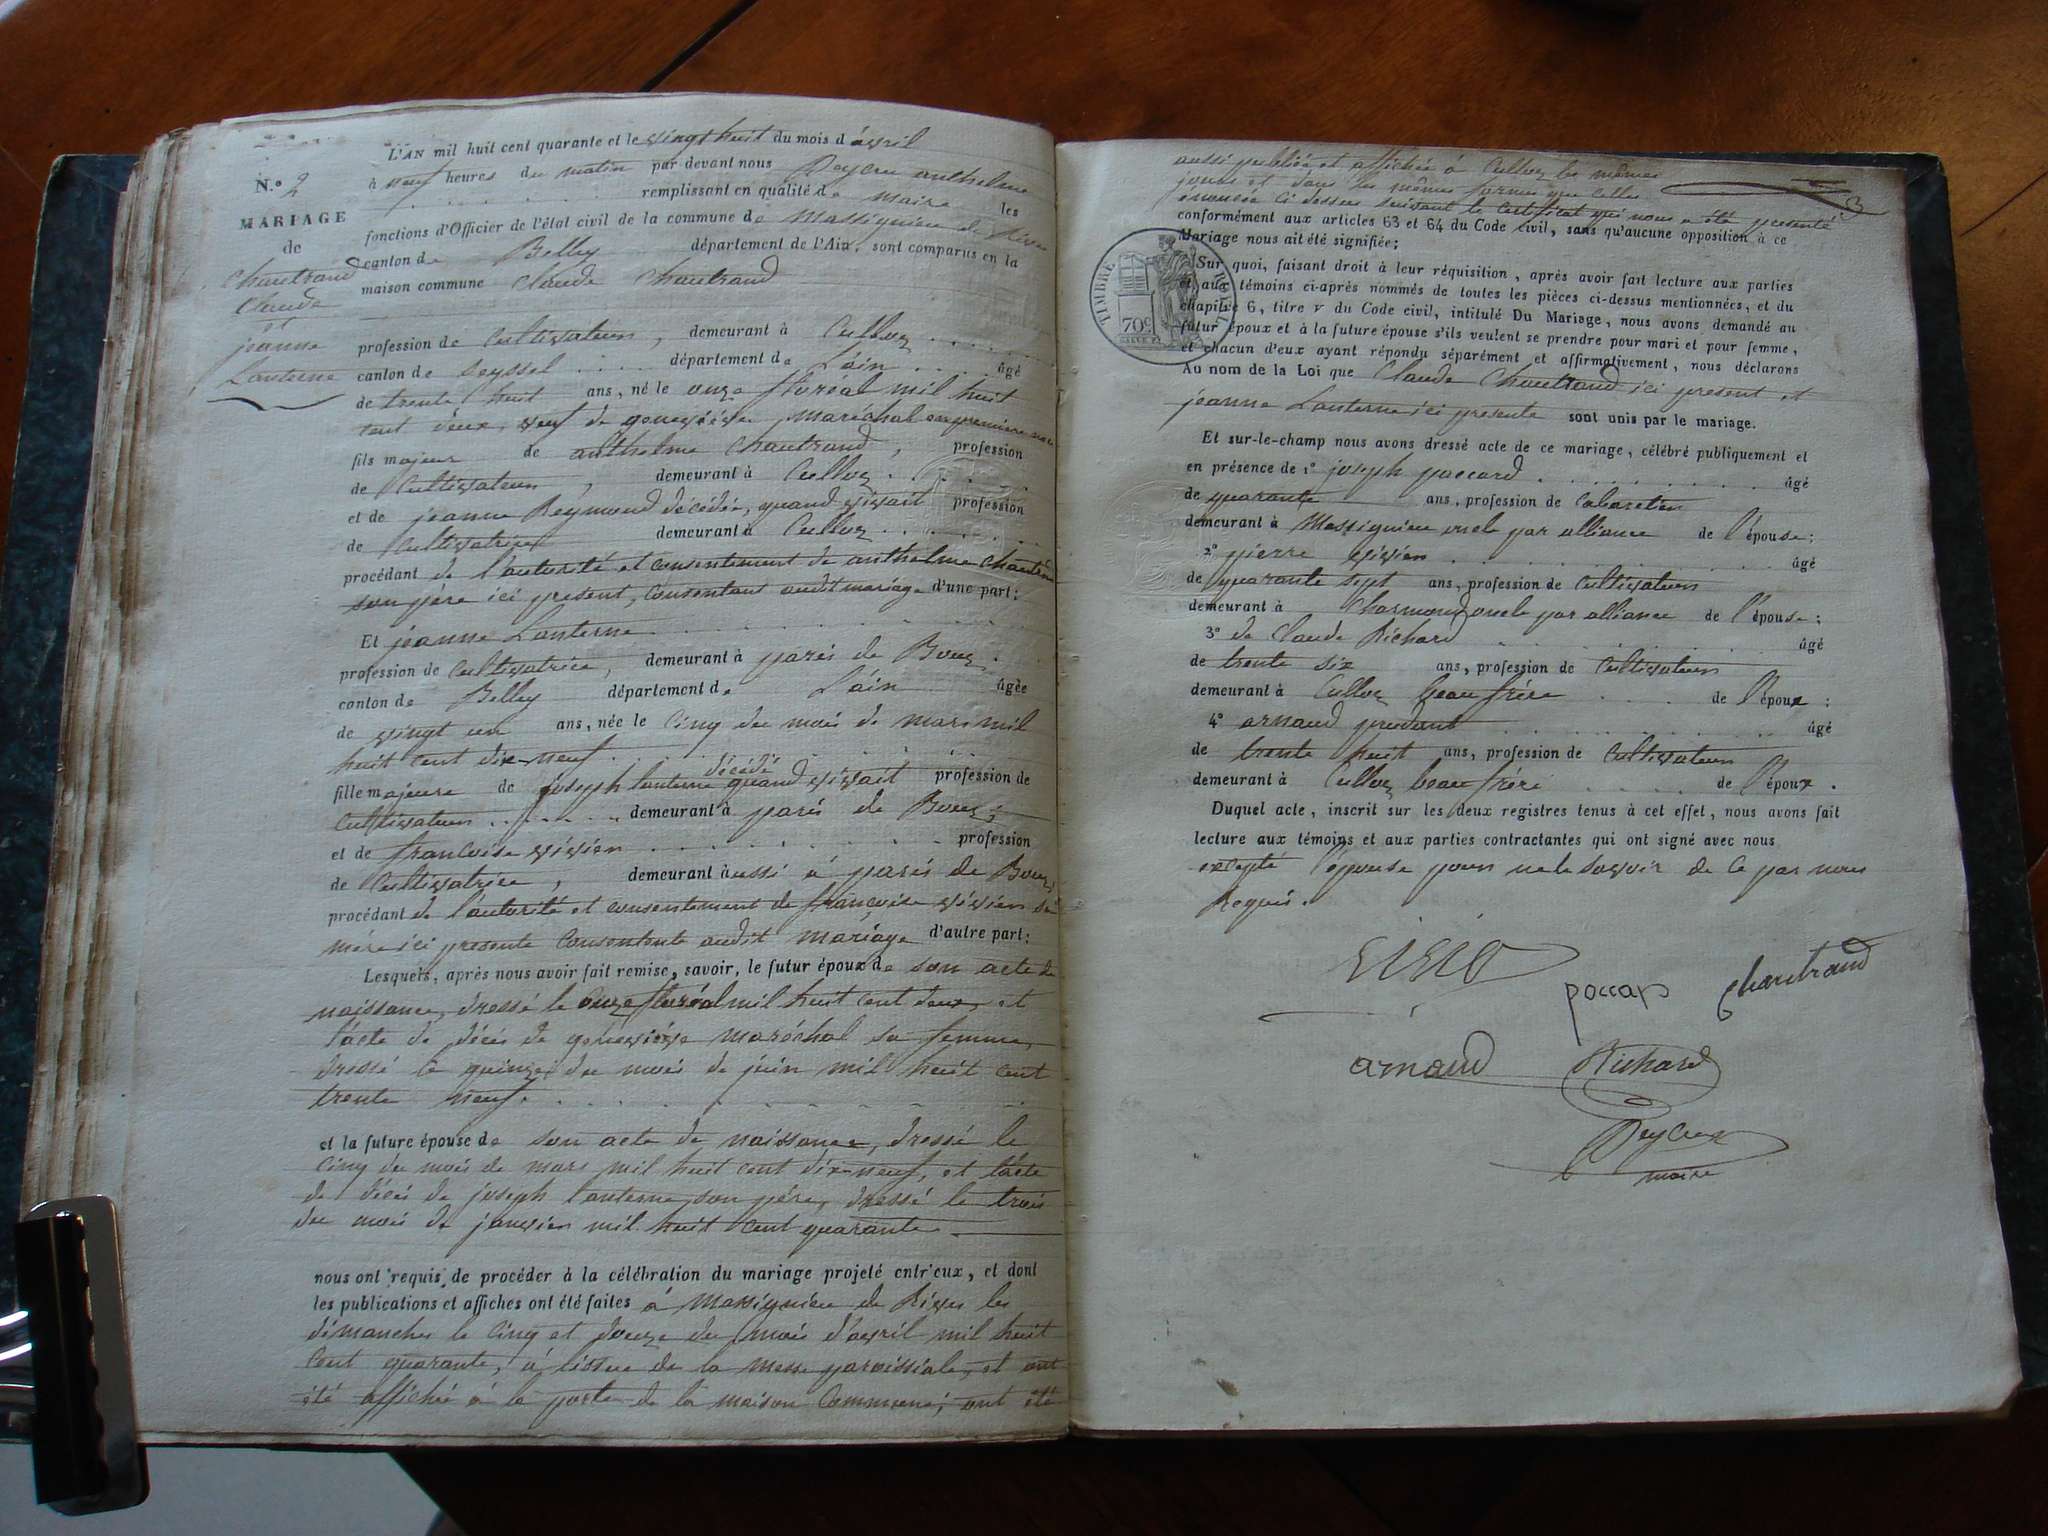 N.° 2
MARIAGE
de
Chautrand
Claude
et
jeanne
Lanterne
L'AN mil huit cent quarante et le vingt huit du mois d'avril
à neuf heures du matin par devant nous Peycru anthelme
remplissant en qualité de maire les
fonctions d'Officier de l'état civil de la commune de Massignieu de Rives
canton de Belley département de l'Ain, sont comparus en la
maison commune Claude Chautrand
profession de Cultivateur, demeurant à Culloz
canton de Seyssel département de L'ain âgé
de trente huit ans, né le onze floréal mil huit
cent deux, veuf de geneviève maréchal en première noce
fils majeur de anthelme Chautrand, profession
de Cultivateur, demeurant à Culloz
et de jeanne Reymond décédée, quand vivait profession
de Cultivatrice demeurant à Culloz
procédant de l'autorité et consentement de anthelme Chautrand
son père ici présent, consentant audit mariage d'une part;
Et jeanne Lanterne
profession de Cultivatrice, demeurant à parés de Bouz
canton de Belley département de L'ain âgée
de vingt un ans, née le Cinq du mois de mars mil
huit cent dix-neuf
fille majeure de joseph lanterne décédé quand vivait profession de
Cultivateur demeurant à parés de Bouz
et de francoise vivien profession
de Cultivatrice, demeurant aussi à parés de Bouz,
procédant de l'autorité et consentement de françoise vivien sa
mère ici presente Consentente audit mariage d'autre part;
Lesquels, après nous avoir fait remise, savoir, le futur époux de son acte de
naissance, dressé le onze floréal mil huit cent deux, et
l'acte de décés de geneviève maréchal sa femme,
dressé le quinze du mois de juin mil huit cent
trente neuf.
et la future épouse de son acte de naissance, dressé le
cinq du mois de mars mil huit cent dix-neuf, et l'acte
de décés de joseph lanterne son père, dressé le trois
du mois de janvier mil huit cent quarante.
nous ont requis de procéder à la célébration du mariage projeté entr'eux, et dont
les publications et affiches ont été faites à Massignieu de Rives les
dimanches le cinq et douze du mois d'avril mil huit
cent quarante, à l'issue de la messe paroissiale, et ont
été affiché à la porte de la maison Commune, ont été
aussi publiée et affichée à Culloz les mêmes
jours et dans les mêmes formes que celles
énoncée Ci dessus suivant le certificat qui nous a été presenté 3
conformément aux articles 63 et 64 du Code civil, sans qu'aucune opposition à ce
Mariage nous ait été signifiée;
TIMBRE ROYAL
70c
Sur quoi, faisant droit à leur réquisition, après avoir fait lecture aux parties
et aux témoins ci-après nommés de toutes les pièces ci-dessus mentionnées, et du
chapitre 6, titre v du Code civil, intitulé Du Mariage, nous avons demandé au
futur époux et à la future épouse s'ils veulent se prendre pour mari et pour femme,
et chacun d'eux ayant répondu séparément et affirmativement, nous déclarons
Au nom de la Loi que Claude Chautrand ici present et
jeanne Lanterne ici presente sont unis par le mariage.
Et sur-le-champ nous avons dressé acte de ce mariage, célébré publiquement et
en présence de 1° joseph paccard âgé
de quarante ans, profession de Cabaretier
demeurant à Massignieu oncle par alliance de l'épouse;
2° pierre vivien âgé
de quarante sept ans, profession de Cultivateur
demeurant à oncle par alliance de l'épouse;
3° de Claude Richard âgé
de trente six ans, profession de Cultivateur
demeurant à Culloz beau frère de l'époux;
4° arnaud prudent âgé
de trente huit ans, profession de Cultivateur
demeurant à Culloz beau frère de l'époux.
Duquel acte, inscrit sur les deux registres tenus à cet effet, nous avons fait
lecture aux témoins et aux parties contractantes qui ont signé avec nous
excepté l'épouse pour ne le savoir de ce par nous
Requis.
poccar Chautrand
arnaud Richard
Peycru
maire